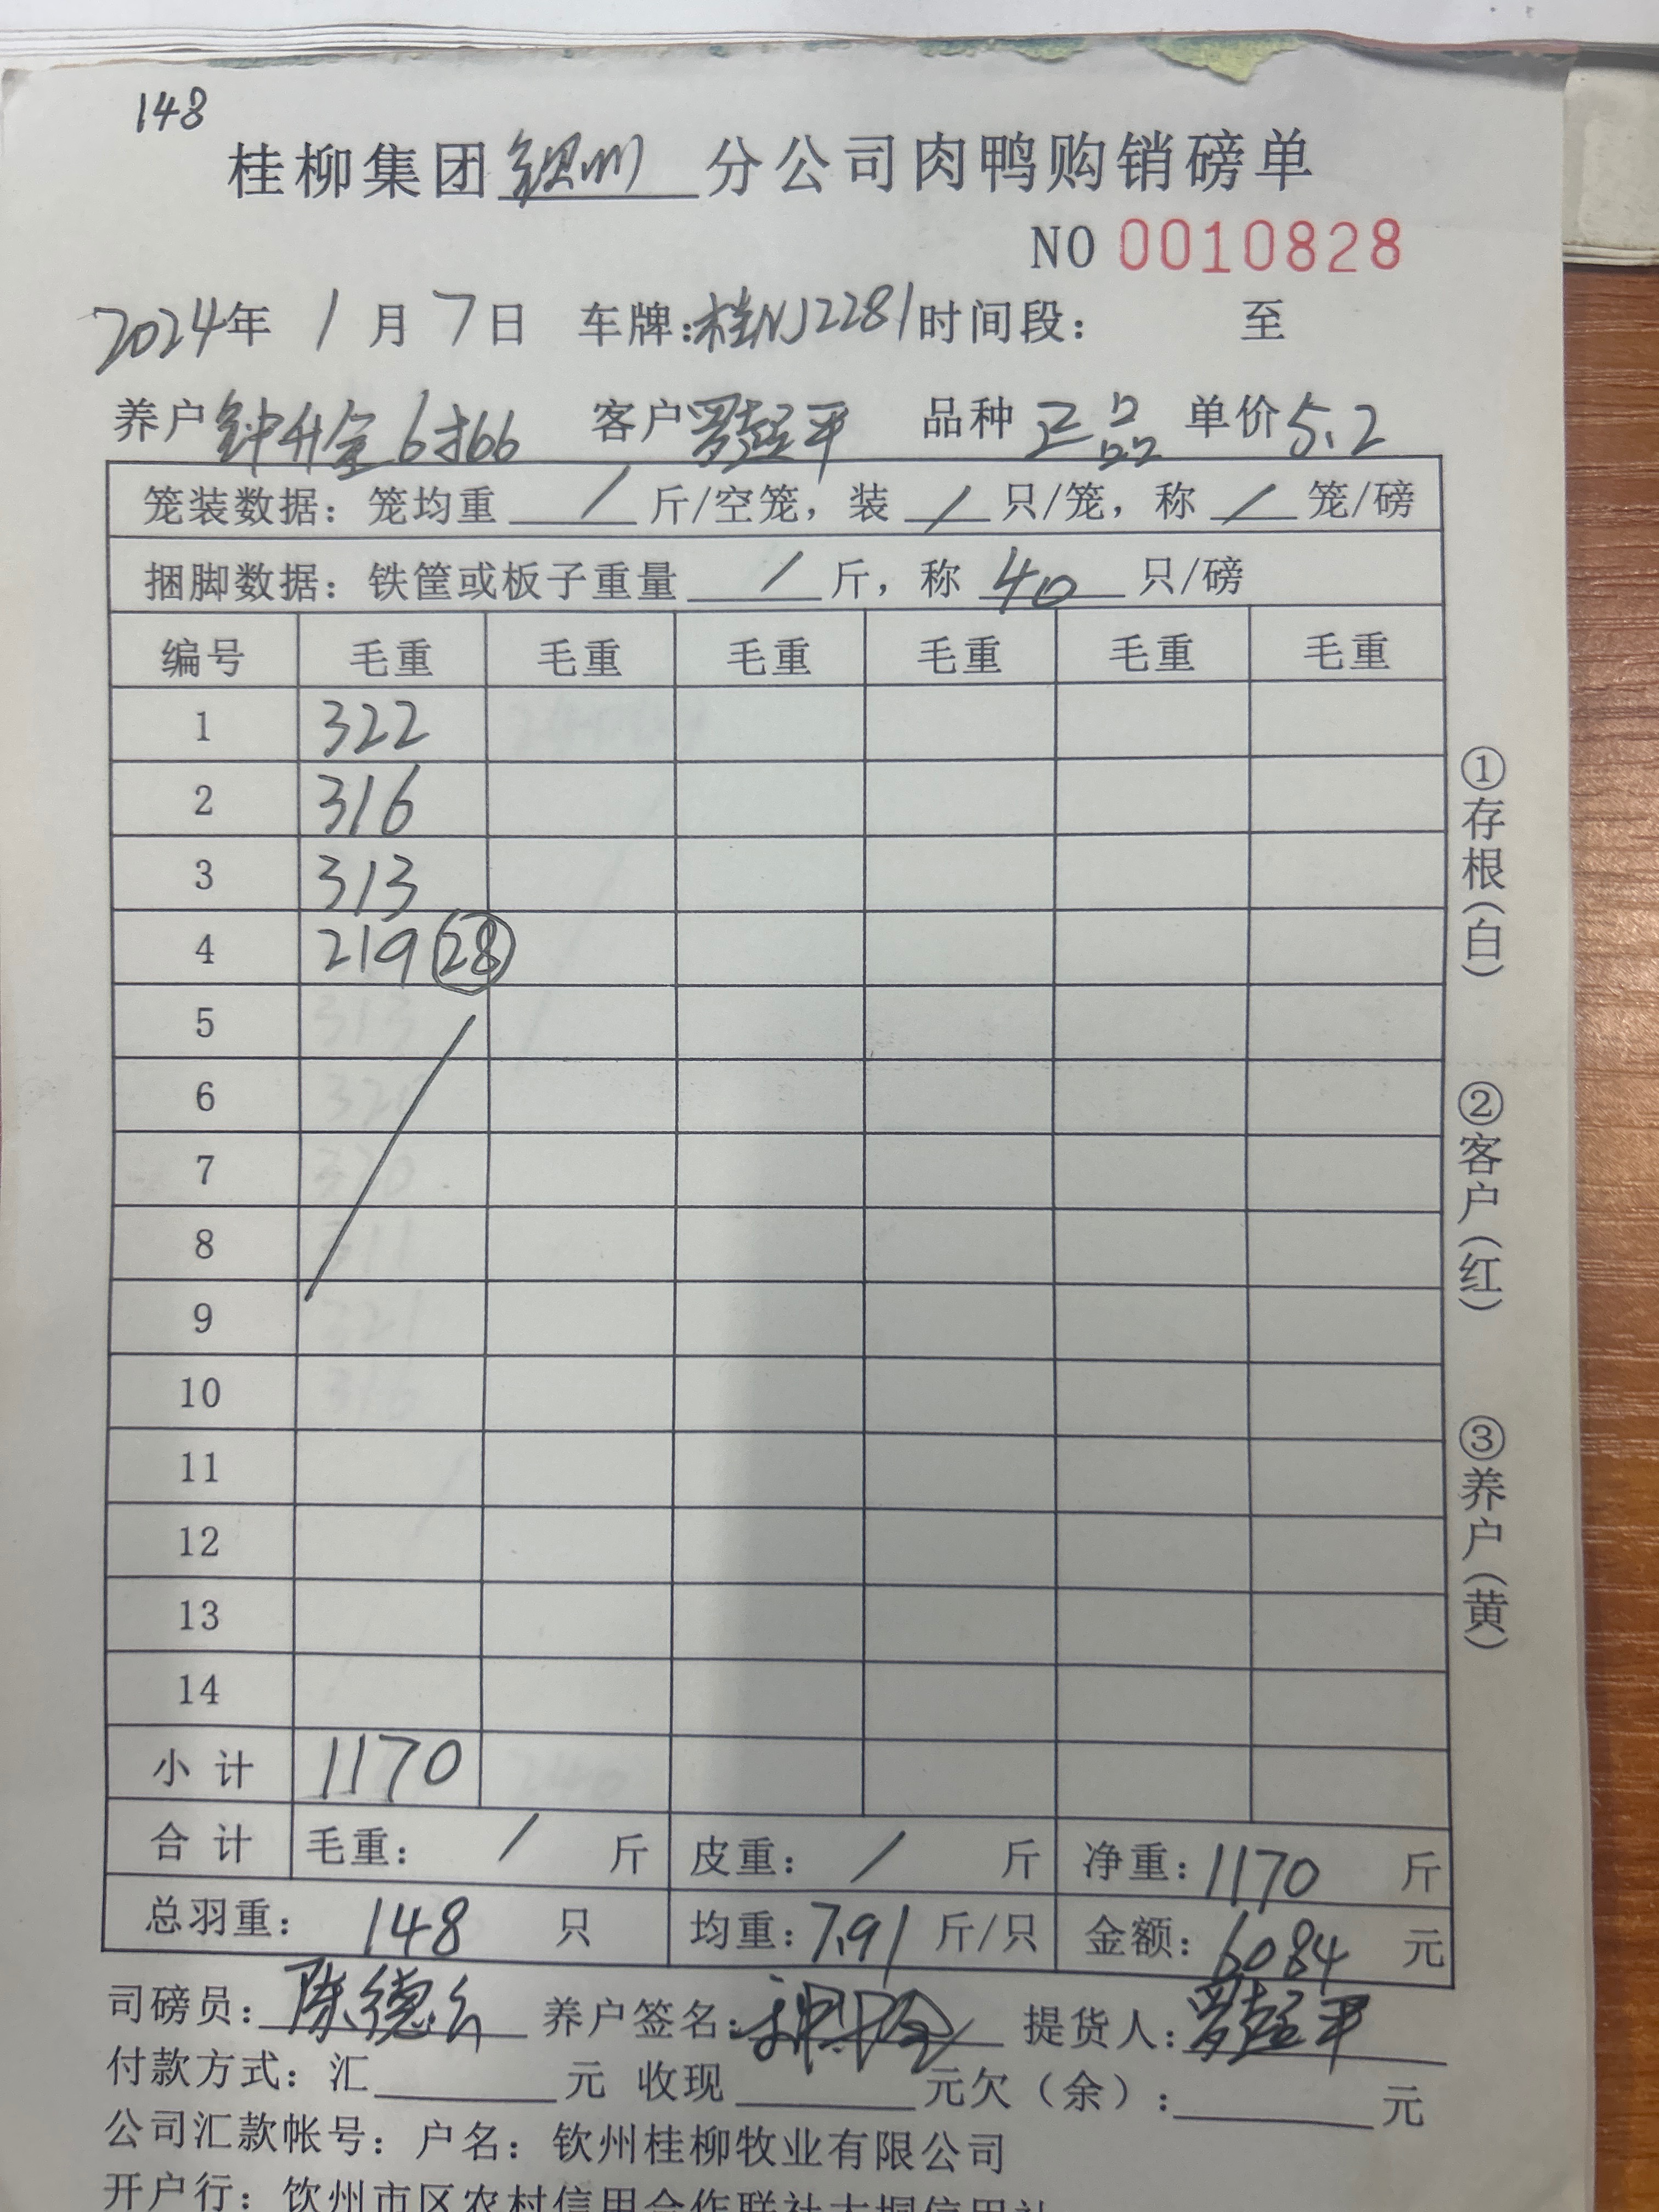 148
桂柳集团钦州分公司肉鸭购销磅单
NO 0010828
2024年 1月 7日 车牌:桂NJ2281 时间段: 至
养户 钟升金 客户 罗超平 品种 正品 单价 5.2
笼装数据: 笼均重 / 斤/空笼, 装 / 只/笼, 称 / 笼/磅
捆脚数据: 铁筐或板子重量 / 斤, 称 40 只/磅
编号 毛重 毛重 毛重 毛重 毛重 毛重
1 322
2 316
3 313
4 219 28
5
6
7
8
9
10
11
12
13
14
小计 1170
合计 毛重: / 斤 皮重: / 斤 净重: 1170 斤
总羽重: 148 只 均重: 7.91 斤/只 金额: 6084 元
司磅员: 陈德 养户签名: 提货人: 罗超平
付款方式: 汇 元 收现 元欠(余): 元
公司汇款帐号: 户名: 钦州桂柳牧业有限公司
开户行: 钦州市区农村信用合作联社大垌信用社
①存根(白)
②客户(红)
③养户(黄)